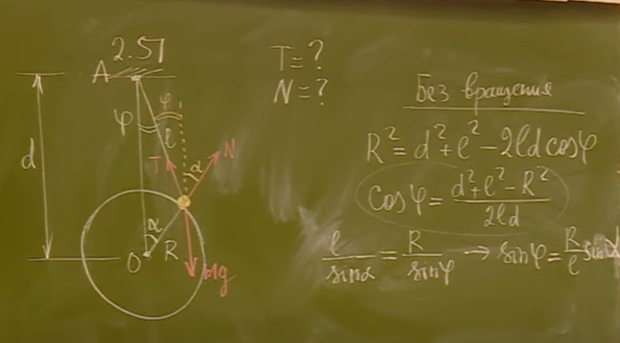 2.57
A
T=?
N=?
φ
φ
l
d
T
α
N
α
R
O
Mg
Без вращения
R² = d² + l² - 2ld cosφ
cosφ = (d² + l² - R²)/(2ld)
l/sinα = R/sinφ → sinφ = R/l sinα